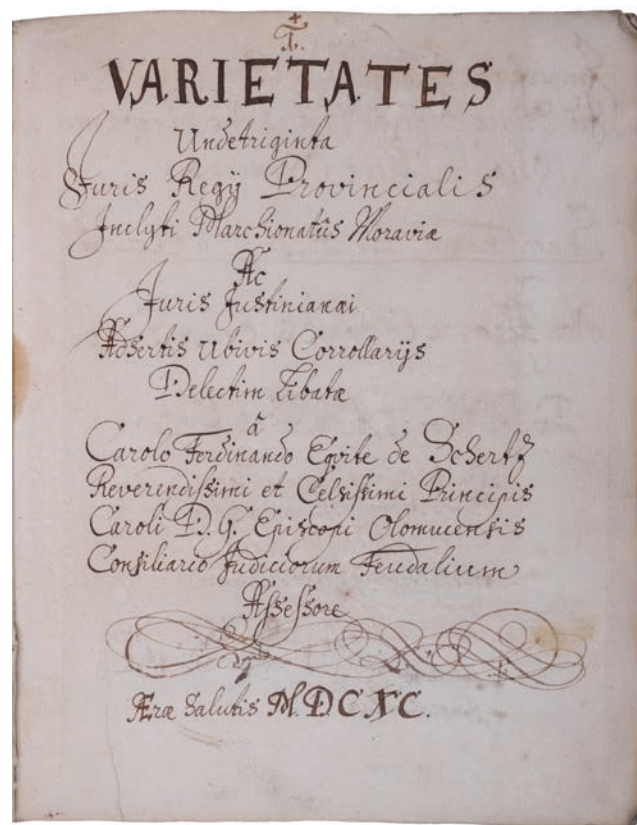 I.
VARIETATES
Undetriginta
Juris Regÿ Provincialis
Inclyti Marchionatûs Moraviæ
Ac
Juris Justinianæi
Adsertis Ubivis Corrollarÿs
Delectim Libatæ
â
Carolo Ferdinando Eqvite de Schertz
Reverendissimi et Celsissimi Principis
Caroli D. G. Episcopi Olomucensis
Consiliario Judiciorum Feudalium
Assessore
Æræ Salutis M.DCXC.